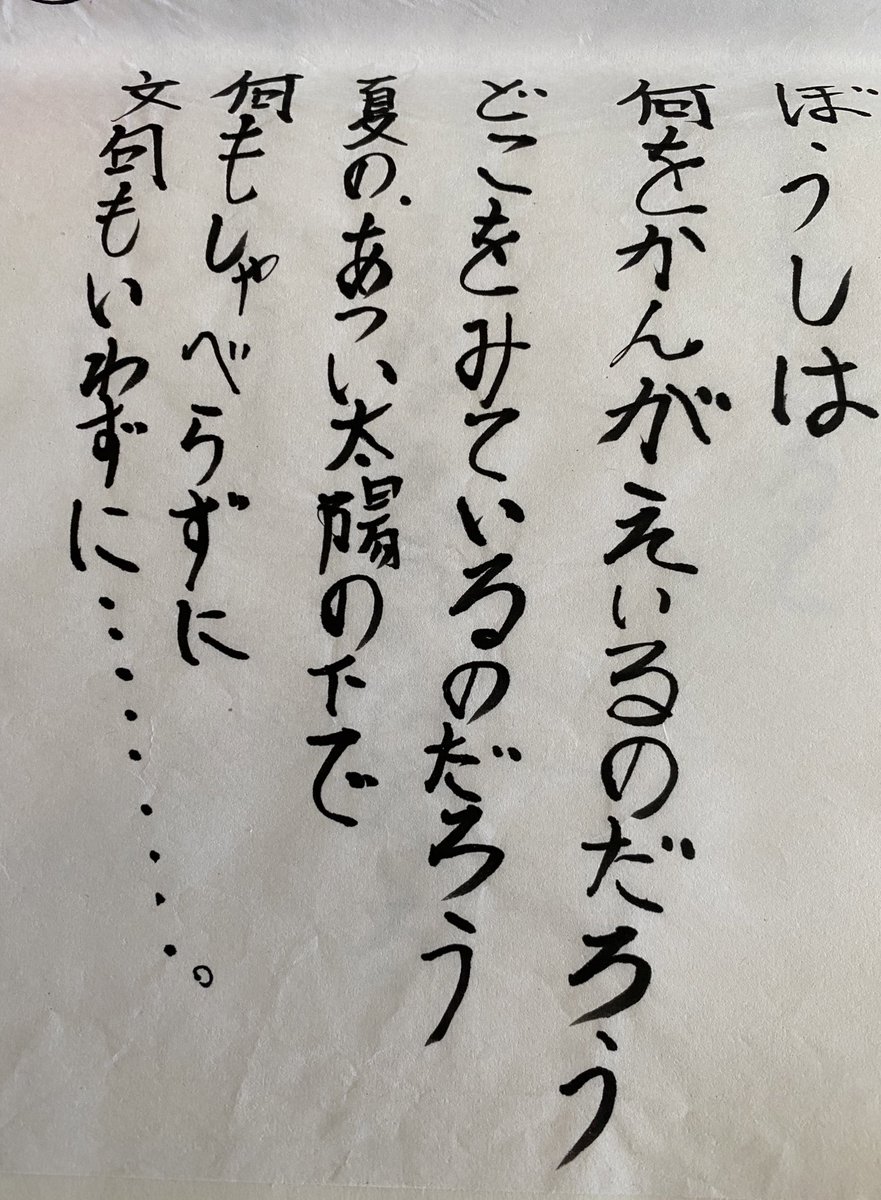 ぼうしは
何をかんがえいるのだろう
どこをみているのだろう
夏のあつい太陽の下で
何もしゃべらずに
文句もいわずに・・・・・・・・・。